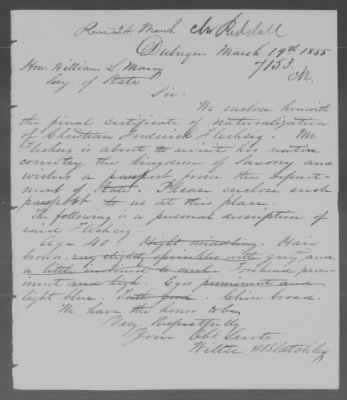 Recd 24. March Mr Riddall
Dubuque March 19th 1855
7153.
Hon. William L. Marcy
Secy. of State
Sir.
We enclose herewith
the final certificate of naturalization
of Christian Frederick Flechsig. Mr
Flechsig is about to revisit his native
country the kingdom of Saxony and
wishes a passport from the Depart-
ment of State. Please enclose such
passport to us at this place.
The following is a personal description of
said Flechsig.
Age 40. Hight middling. Hair
brown, very slightly sprinkled with grey, and
a little inclined to curl. Forehead prom-
inent and high. Eyes prominent and
light blue. Teeth good. Chin broad.
We have the honor to be
Very Respectfully
Your Obt Servts
Wiltse & Blatchley